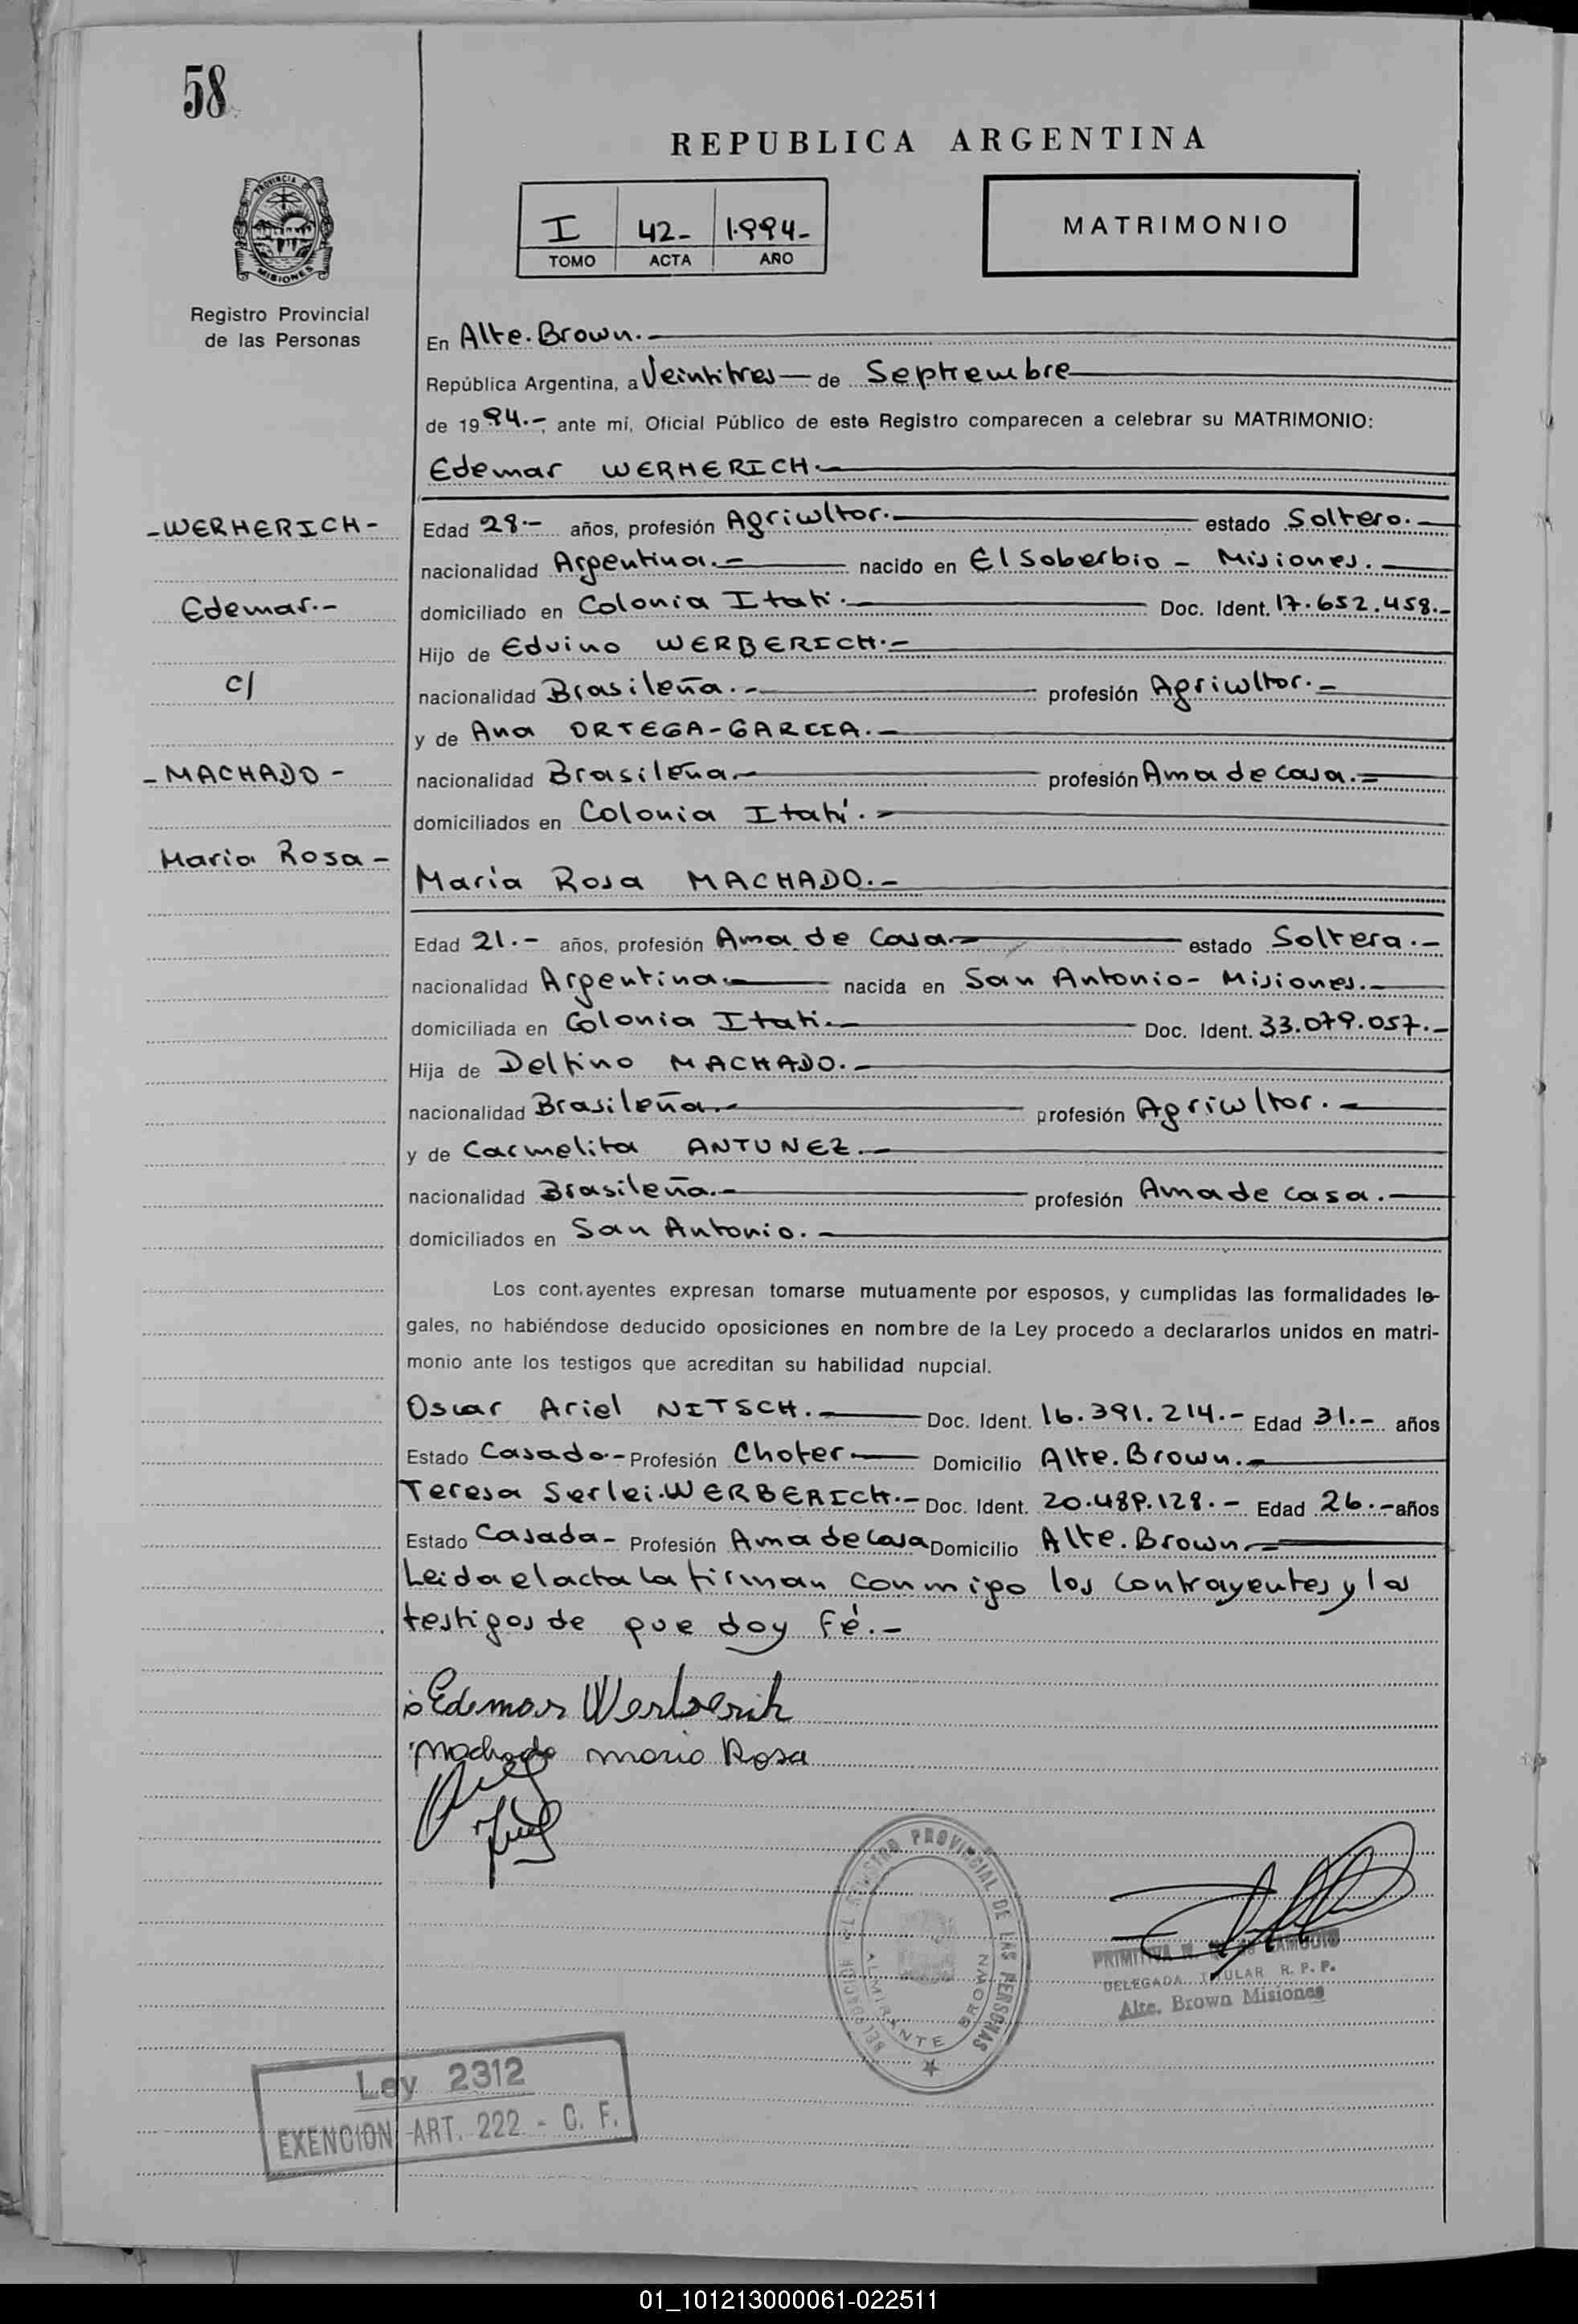 58
REPUBLICA ARGENTINA
PROVINCIA DE
MISIONES
I 42- 1.994-
TOMO ACTA AÑO
MATRIMONIO
Registro Provincial
de las Personas
En Alte. Brown.-
República Argentina, a Veintitres — de Septiembre
de 19 94.-, ante mí, Oficial Público de este Registro comparecen a celebrar su MATRIMONIO:
Edemar WERHERICH.-
-WERHERICH-
Edad 28.- años, profesión Agricultor.- estado Soltero.-
nacionalidad Argentina.- nacido en El Soberbio - Misiones.-
Edemar.-
domiciliado en Colonia Itati.- Doc. Ident. 17.652.458.-
Hijo de Edvino WERBERICH.-
c/
nacionalidad Brasileña.- profesión Agricultor.-
y de Ana ORTEGA-GARCIA.-
-MACHADO-
nacionalidad Brasileña.- profesión Ama de casa.-
domiciliados en Colonia Itatí.-
Maria Rosa-
Maria Rosa MACHADO.-
Edad 21.- años, profesión Ama de Casa.- estado Soltera.-
nacionalidad Argentina.- nacida en San Antonio- Misiones.-
domiciliada en Colonia Itati.- Doc. Ident. 33.079.057.-
Hija de Delfino MACHADO.-
nacionalidad Brasileña.- profesión Agricultor.-
y de Carmelita ANTUNEZ.-
nacionalidad Brasileña.- profesión Ama de casa.-
domiciliados en San Antonio.-
Los contrayentes expresan tomarse mutuamente por esposos, y cumplidas las formalidades le-
gales, no habiéndose deducido oposiciones en nombre de la Ley procedo a declararlos unidos en matri-
monio ante los testigos que acreditan su habilidad nupcial.
Oscar Ariel NITSCH.- Doc. Ident. 16.391.214.- Edad 31.- años
Estado Casado- Profesión Chofer — Domicilio Alte. Brown.-
Teresa Serlei WERBERICH.- Doc. Ident. 20.489.128.- Edad 26.- años
Estado Casada- Profesión Ama de casa Domicilio Alte. Brown.-
Leida el acta la firman conmigo los contrayentes y los
testigos de que doy Fé.-
Edemar Werberich
Machado Maria Rosa
DELEGACION DEL REGISTRO PROVINCIAL DE LAS PERSONAS
ALMIRANTE BROWN
PRIMITIVA
DELEGADA TITULAR R. P. P.
Alte. Brown Misiones
Ley 2312
EXENCION ART. 222 - C. F.
01_101213000061-022511